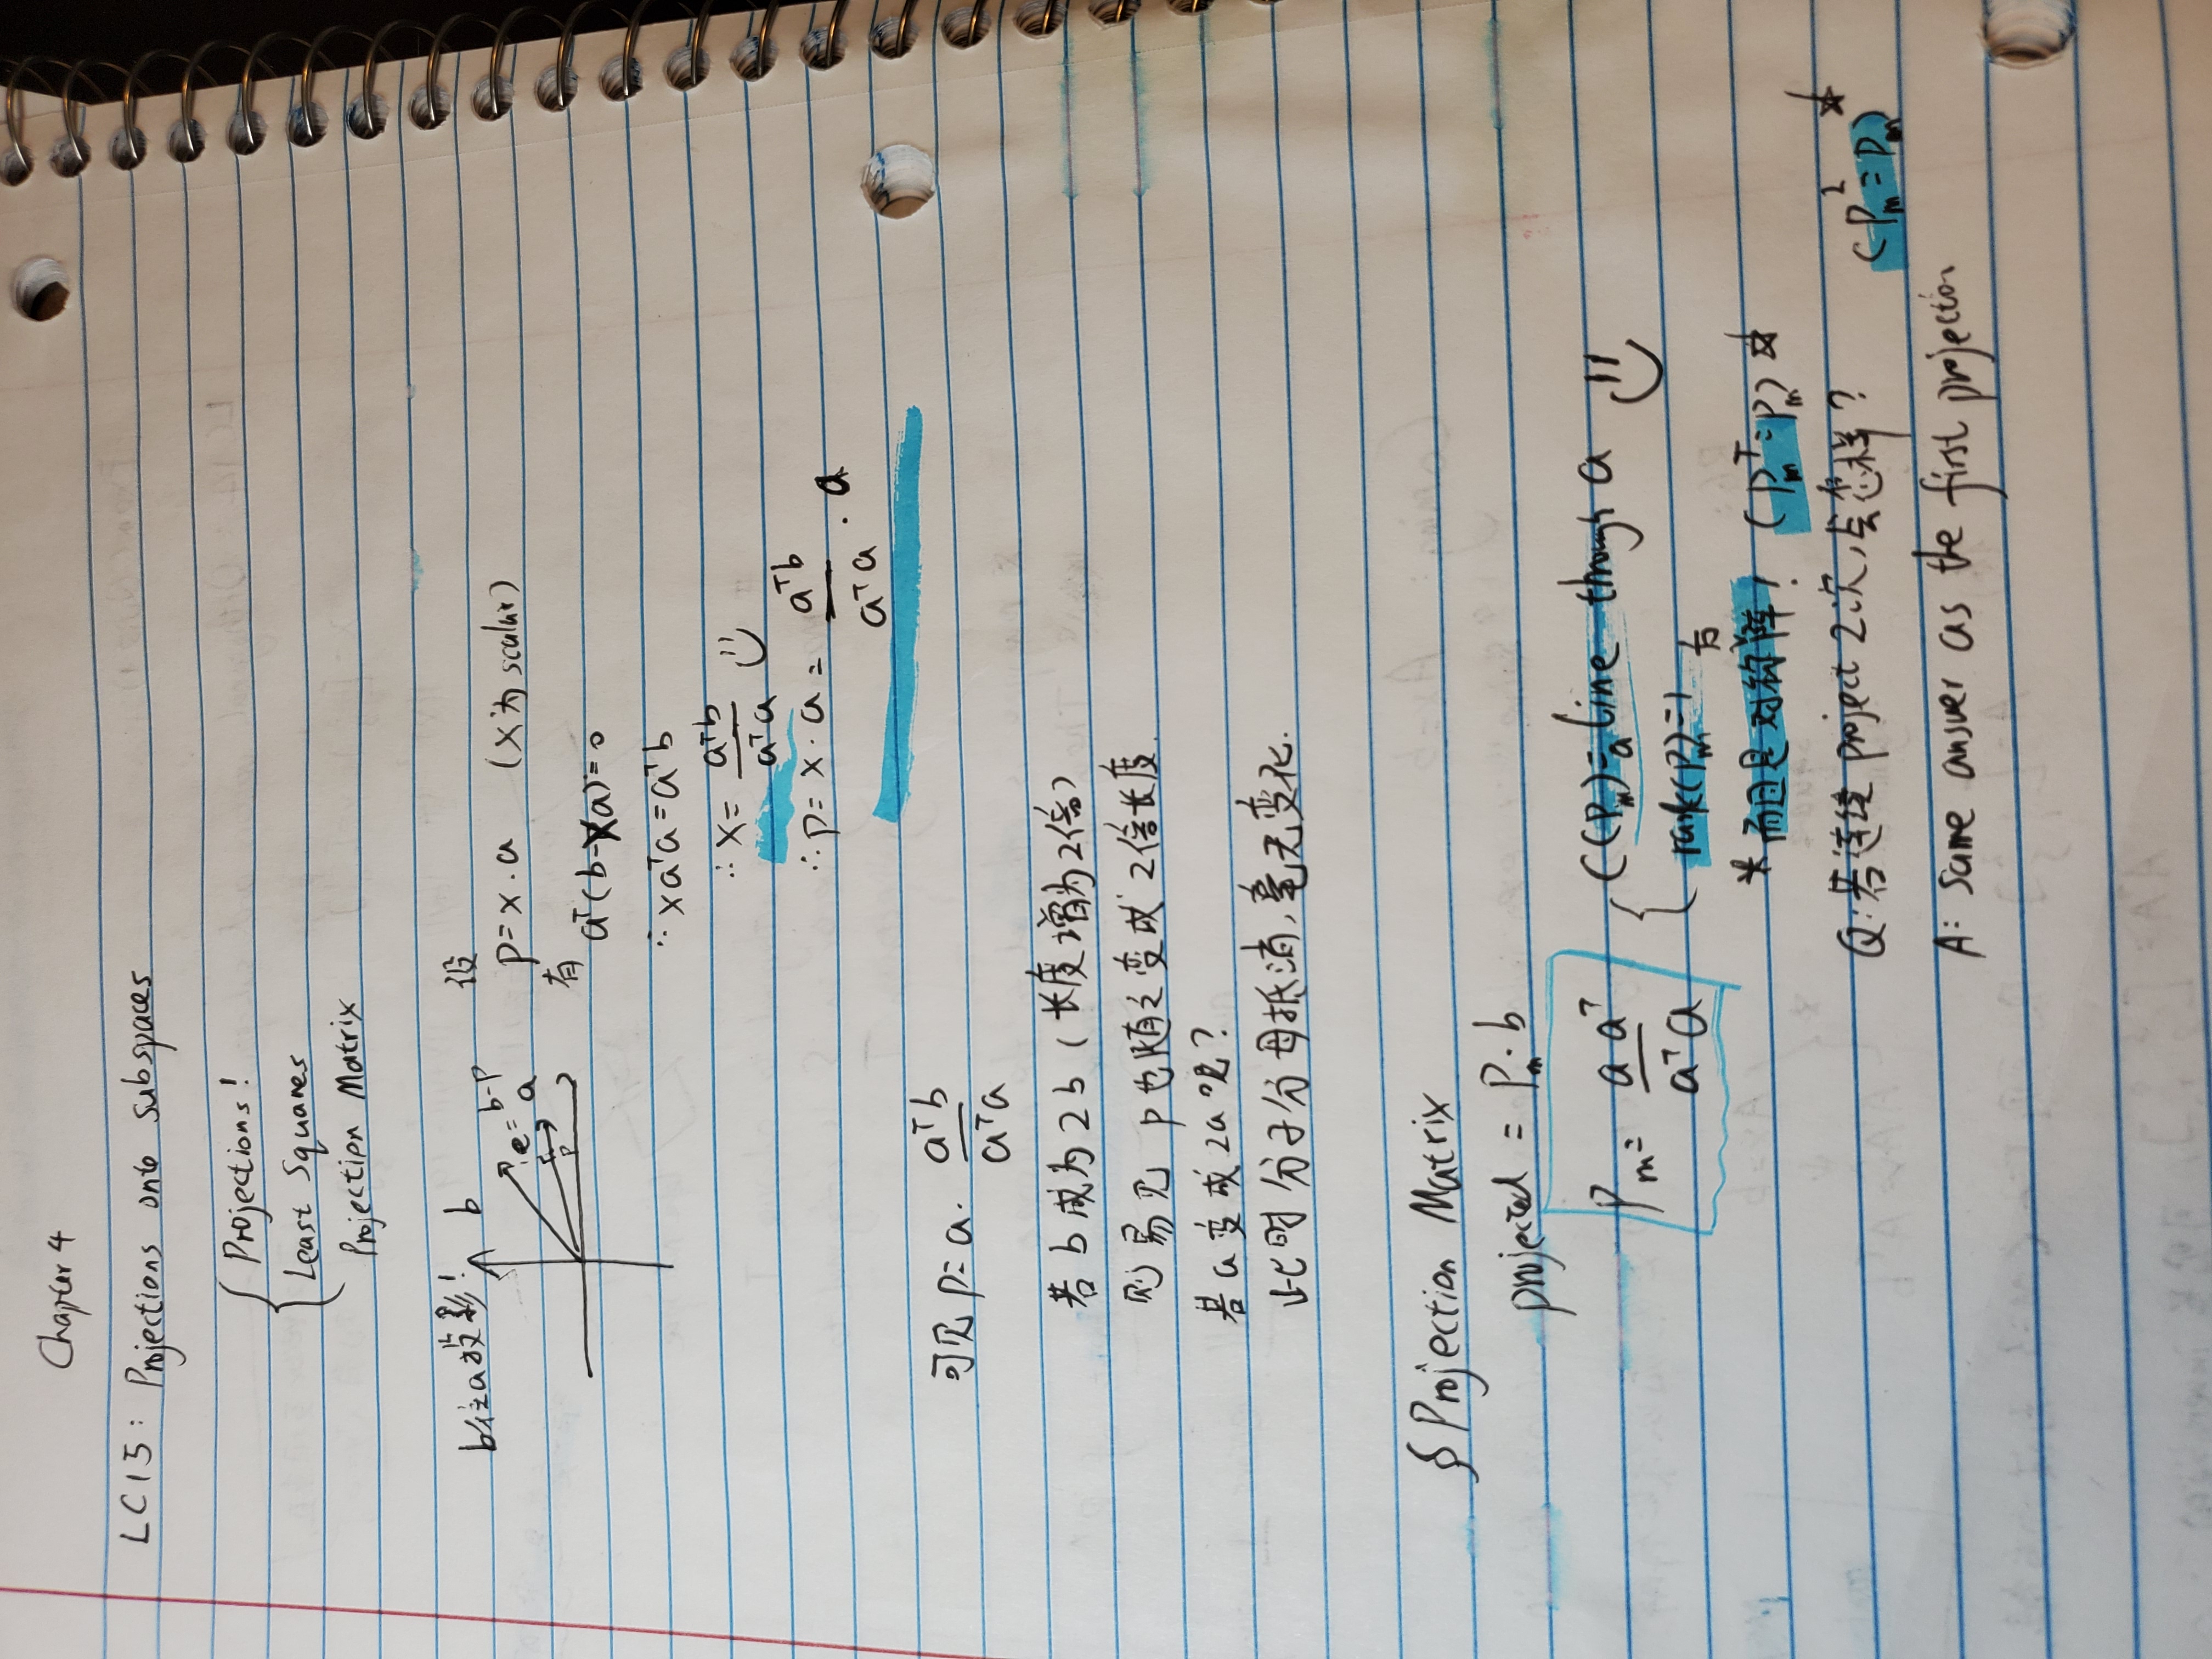 Chapter 4
LC15: Projections onto subspaces
Projections!
Least Squares
Projection Matrix
b往a投影!
b
e=b-p
a
p
设
p=x·a (x为scalar)
有
aᵀ(b-xa)=0
∴xaᵀa=aᵀb
∴x= aᵀb / aᵀa
∴p=x·a= aᵀb / aᵀa ·a
可见 p=a· aᵀb / aᵀa
若b成为2b(长度增为2倍)
则易见 p也随之变成2倍长度.
若a变成2a呢?
此时分子分母抵消,毫无变化.
§ Projection Matrix
projected = Pₘ·b
Pₘ= a aᵀ / aᵀa
C(Pₘ)=a line through a
rank(Pₘ)=1
*而且是对称方阵! (Pₘᵀ=Pₘ)☆
Q:若连续project 2次,会怎样? (Pₘ²=Pₘ)☆
A: same answer as the first projection